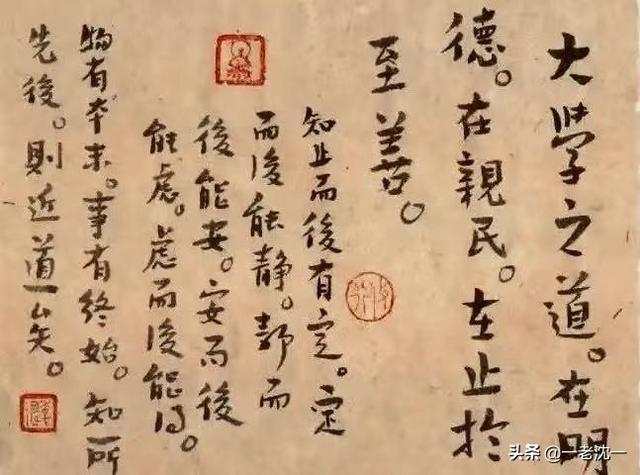 大學之道。在明
德。在親民。在止於
至善。
知止而後有定。定
而後能静。静而
後能安。安而後
能慮。慮而後能得。
物有本末。事有終始。知所
先後。則近道矣。
头条 @一老沈一